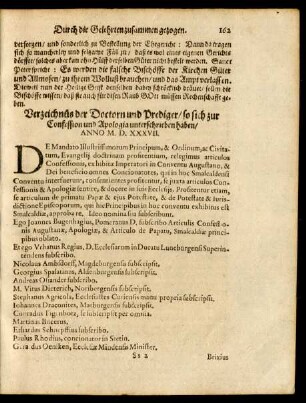 Durch die Gelehrten zusammen gezogen. 162
versorgen / und sonderlich zu Bestellung der Ehegericht: Dann da tragen
sich so mancherley und seltzame Fäll zu / daß es wol eines eigenen Gerichts
bedörffte / solches aber kan ohn Hülff derselben Güter nicht bestellt werden. Sanct
Peter spricht: Es werden die falsche Bischöffe der Kirchen Güter
und Allmosen / zu ihrem Wollust brauchen / und das Ampt verlassen.
Dieweil nun der Heilige Geist denselben dabey schröcklich dräuet / sollen die
Bischöffe wissen / daß sie auch für diesen Raub GOtt müssen Rechenschafft ge-
ben.
Verzeichnüs der Doctorn und Prediger / so sich zur
Confession und Apologia unterschrieben haben /
ANNO M. D. XXXVII.
DE Mandato Illustrissimorum Principum, & Ordinum, ac Civita-
tum, Evangelij doctrinam profitentium, relegimus articulos
Confessionis, exhibitæ Imperatori in Conventu Augustano, &
Dei beneficio omnes Concionatores, qui in hoc Smalcaldensi
Conventu interfuerunt, consentientes profitentur, se juxta articulos Con-
fessionis & Apologiæ sentire, & docere in suis Ecclesiis. Profitentur etiam,
se articulum de primatu Papæ & ejus Potestate, & de Potestate & Juris-
dictione Episcoporum, qui hic Principibus in hoc conventu exhibitus est
Smalcaldiæ, approbare. Ideo nomina sua subscribunt.
Ego Joannes Bugenhagius, Pomeranus D. subscribo Articulis Confessio-
nis Augustanæ, Apologiæ, & Articulo de Papatu, Smalcaldiæ princi-
pibus oblato.
Et ego Urbanus Regius, D. Ecclesiarum in Ducatu Luneburgensi Superin-
tendens subscribo.
Nicolaus Ambsdorff, Magdeburgensis subscripsit.
Georgius Spalatinus, Aldenburgensis subscripsit.
Andreas Osiander subscribo.
M. Vitus Dieterich, Noribergensis subscripsit.
Stephanus Agricola, Ecclesiastes Curiensis manu propria subscripsit.
Johannes Draconites, Marburgensis subscripsit.
Conradus Figenbotz, se subscripsit per omnia.
Martinus Bucerus.
Erhardus Schnepffius subscribo.
Paulus Rhodius, concionator in Stetin.
Gerardus Oeniken, Ecclesiæ Mindensis Minister.
Brixius